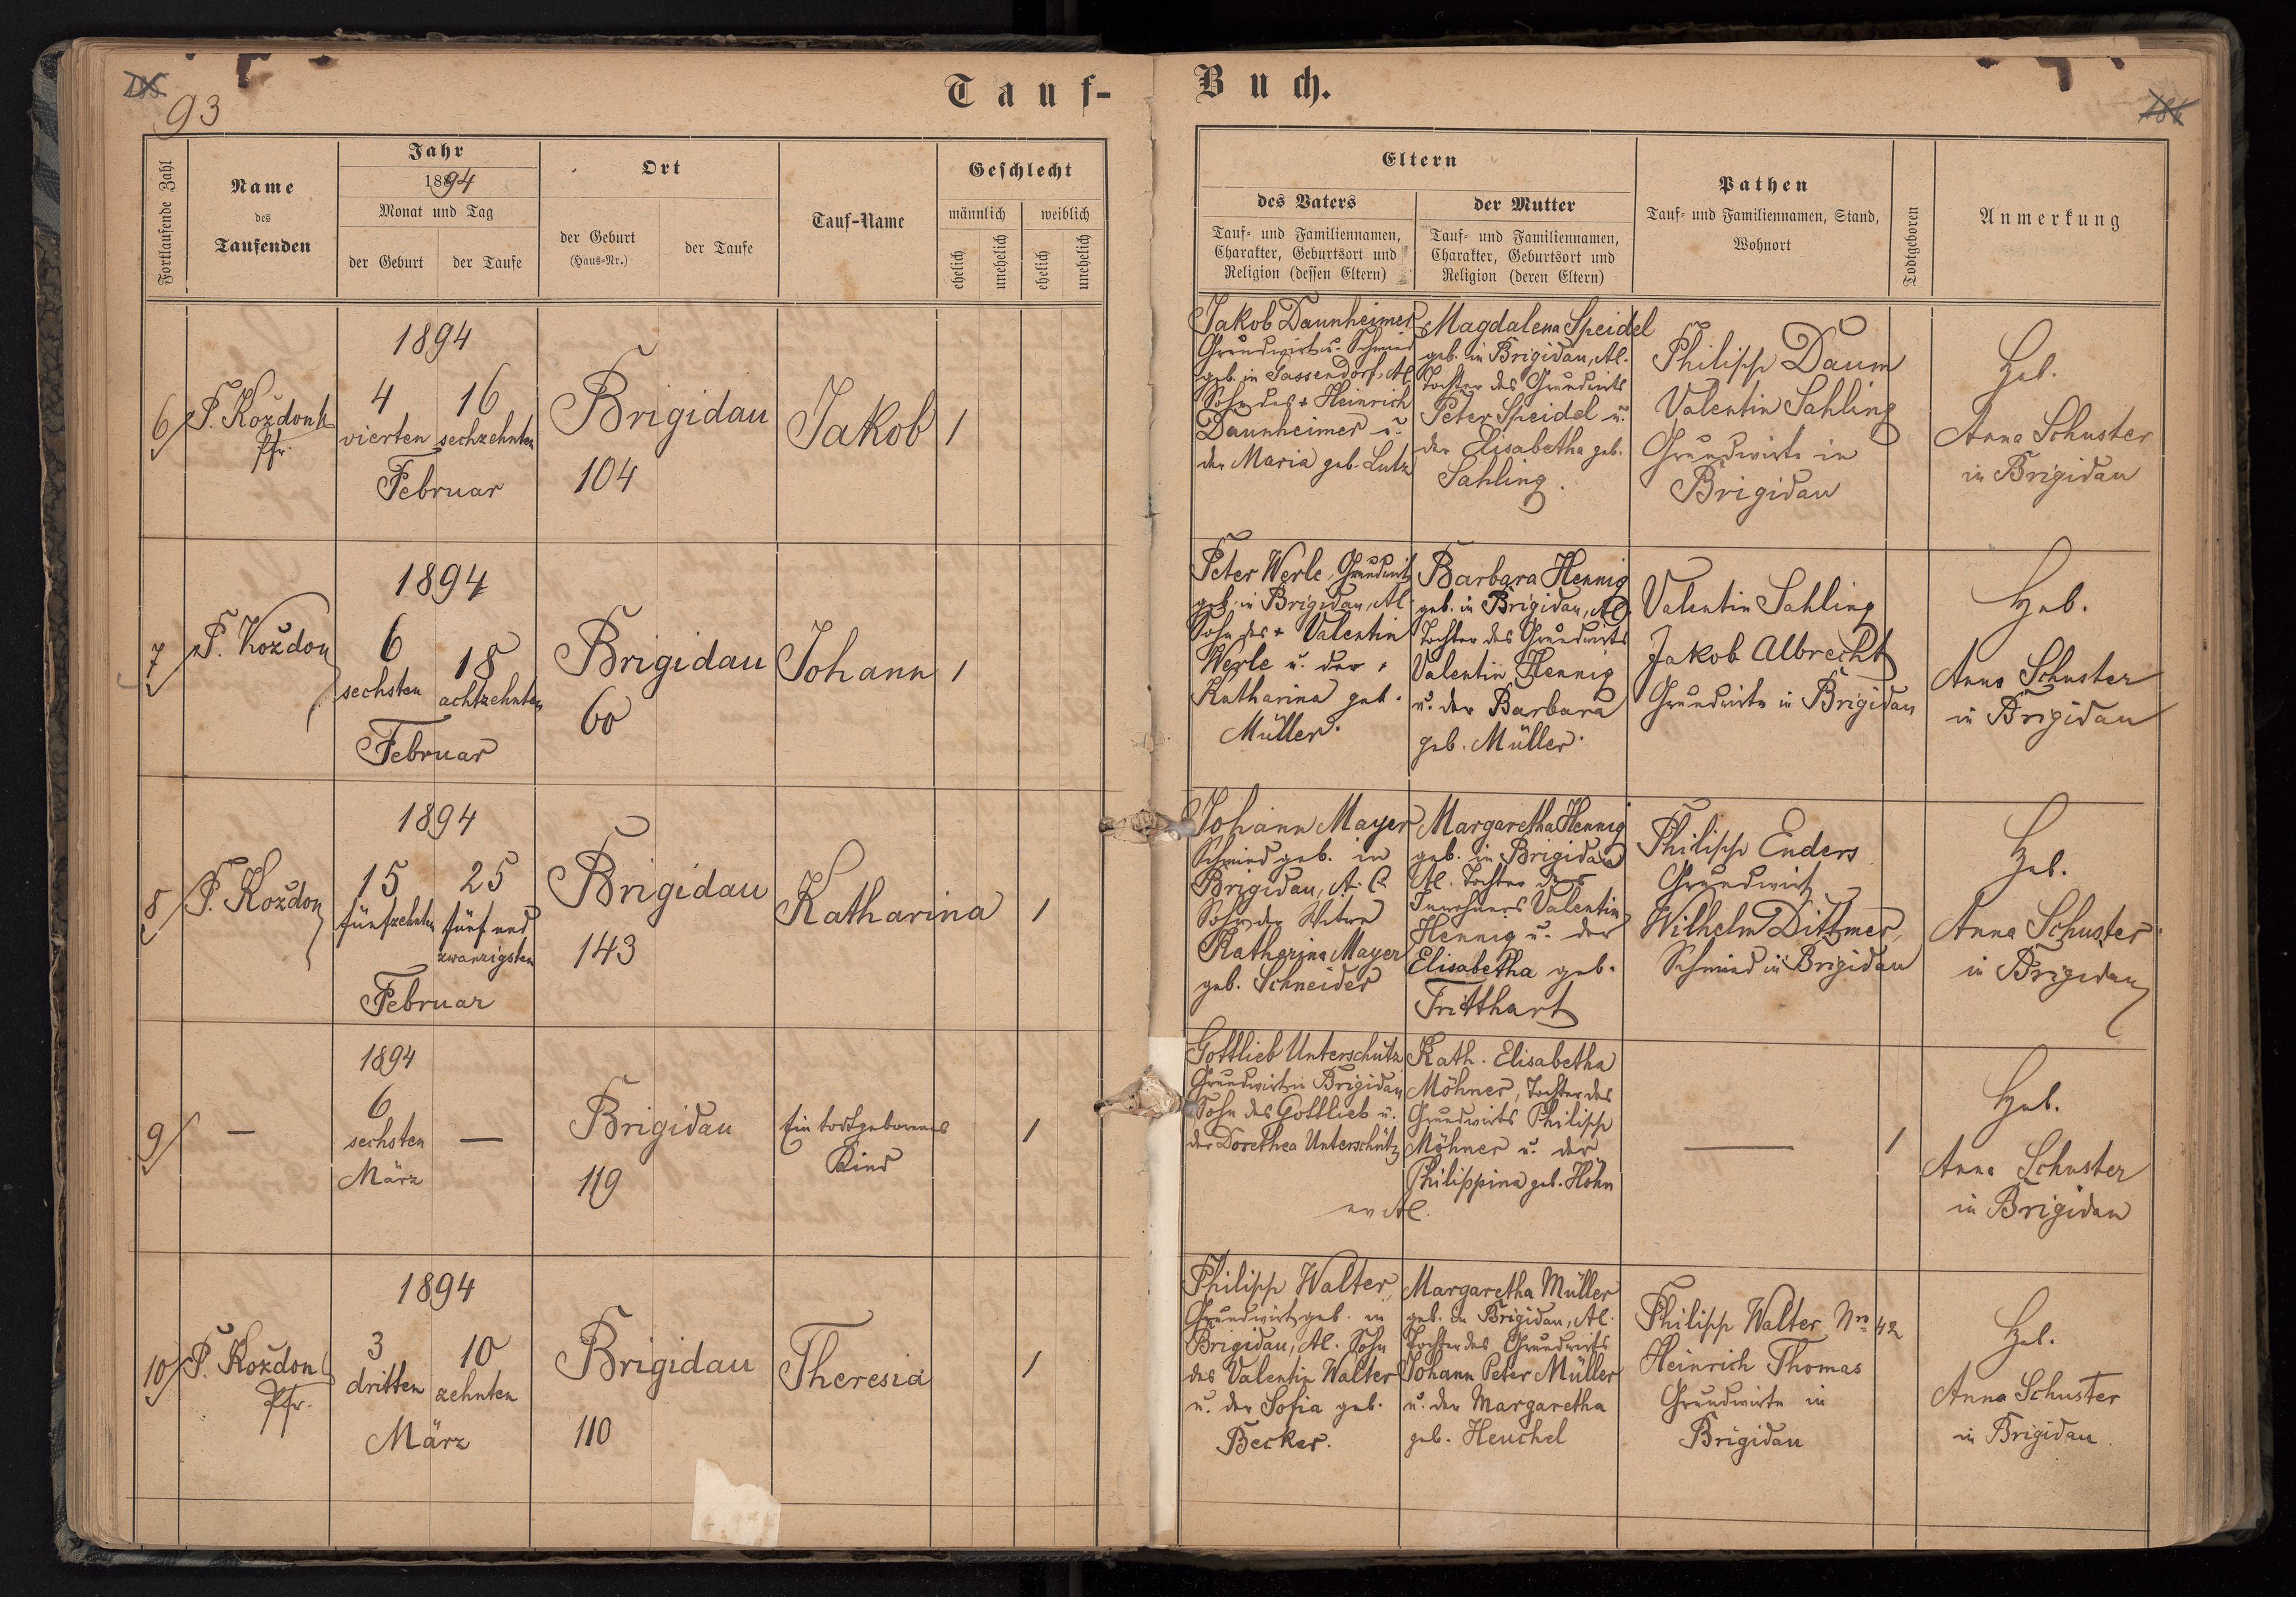 93
Tauf-Buch.
Fortlaufende Zahl
Name
des
Taufenden
Jahr
1894
Monat und Tag
der Geburt
der Taufe
Ort
der Geburt
(Haus-Nr.)
der Taufe
Tauf-Name
Geschlecht
männlich
weiblich
ehelich
unehelich
ehelich
unehelich
Eltern
des Vaters
Tauf- und Familiennamen,
Charakter, Geburtsort und
Religion (dessen Eltern)
der Mutter
Tauf- und Familiennamen,
Charakter, Geburtsort und
Religion (deren Eltern)
Pathen
Tauf- und Familiennamen, Stand,
Wohnort
Todtgeboren
Anmerkung
6
P. Koždon
Pfr.
1894
4
vierten
16
sechzehnten
Februar
Brigidau
104
Jakob
1
Jakob Daunheimer
Grundwirt u. Schmied
geb. in Gassendorf, Al.
Sohn des + Heinrich
Daunheimer u.
der Maria geb. Lutz
Magdalena Speidel
geb. in Brigidau, Al.
Tochter des Grundwirts
Peter Speidel u.
der Elisabetha geb.
Sahling.
Philipp Daum
Valentin Sahling
Grundwirte in
Brigidau
Heb.
Anna Schuster
in Brigidau
7
P. Koždon
1894
6
sechsten
18
achtzehnten
Februar
Brigidau
60
Johann
1
Peter Werle, Grundwirt
geb. in Brigidau, Al.
Sohn des + Valentin
Werle u. der +
Katharina geb.
Müller.
Barbara Hennig
geb. in Brigidau, Al.
Tochter des Grundwirts
Valentin Hennig
u. der Barbara
geb. Müller.
Valentin Sahling
Jakob Albrecht
Grundwirte in Brigidau
Heb.
Anna Schuster
in Brigidau
8
P. Koždon
1894
15
fünfzehnten
25
fünf und
zwanzigsten
Februar
Brigidau
143
Katharina
1
Johann Mayer
Schmied geb. in
Brigidau, A. C.
Sohn der Witwe
Katharina Mayer
geb. Schneider
Margaretha Hennig
geb. in Brigidau
Al. Tochter des
Inwohners Valentin
Hennig u. der
Elisabetha geb.
Tritthart
Philipp Enders
Grundwirt
Wilhelm Dittmer,
Schmied in Brigidau
Heb.
Anna Schuster
in Brigidau
9
—
1894
6
sechsten
März
—
Brigidau
119
Ein todtgeborenes
Kind
1
Gottlieb Unterschütz
Grundwirt in Brigidau
Sohn des Gottlieb u.
der Dorethea Unterschütz
Kath. Elisabetha
Möhner, Tochter des
Grundwirts Philipp
Möhner u. der
Philippina geb. Höhn
ev Al.
—
1
Heb.
Anna Schuster
in Brigidau
10
P. Koždon
Pfr.
1894
3
dritten
10
zehnten
März
Brigidau
110
Theresia
1
Philipp Walter,
Grundwirt geb. in
Brigidau, Al. Sohn
des Valentin Walter
u. der Sofia geb.
Becker.
Margaretha Müller
geb. in Brigidau, Al.
Tochter des Grundwirts
Johann Peter Müller
u. der Margaretha
geb. Heuchel
Philipp Walter Nro 42
Heinrich Thomas
Grundwirte in
Brigidau
Heb.
Anna Schuster
in Brigidau